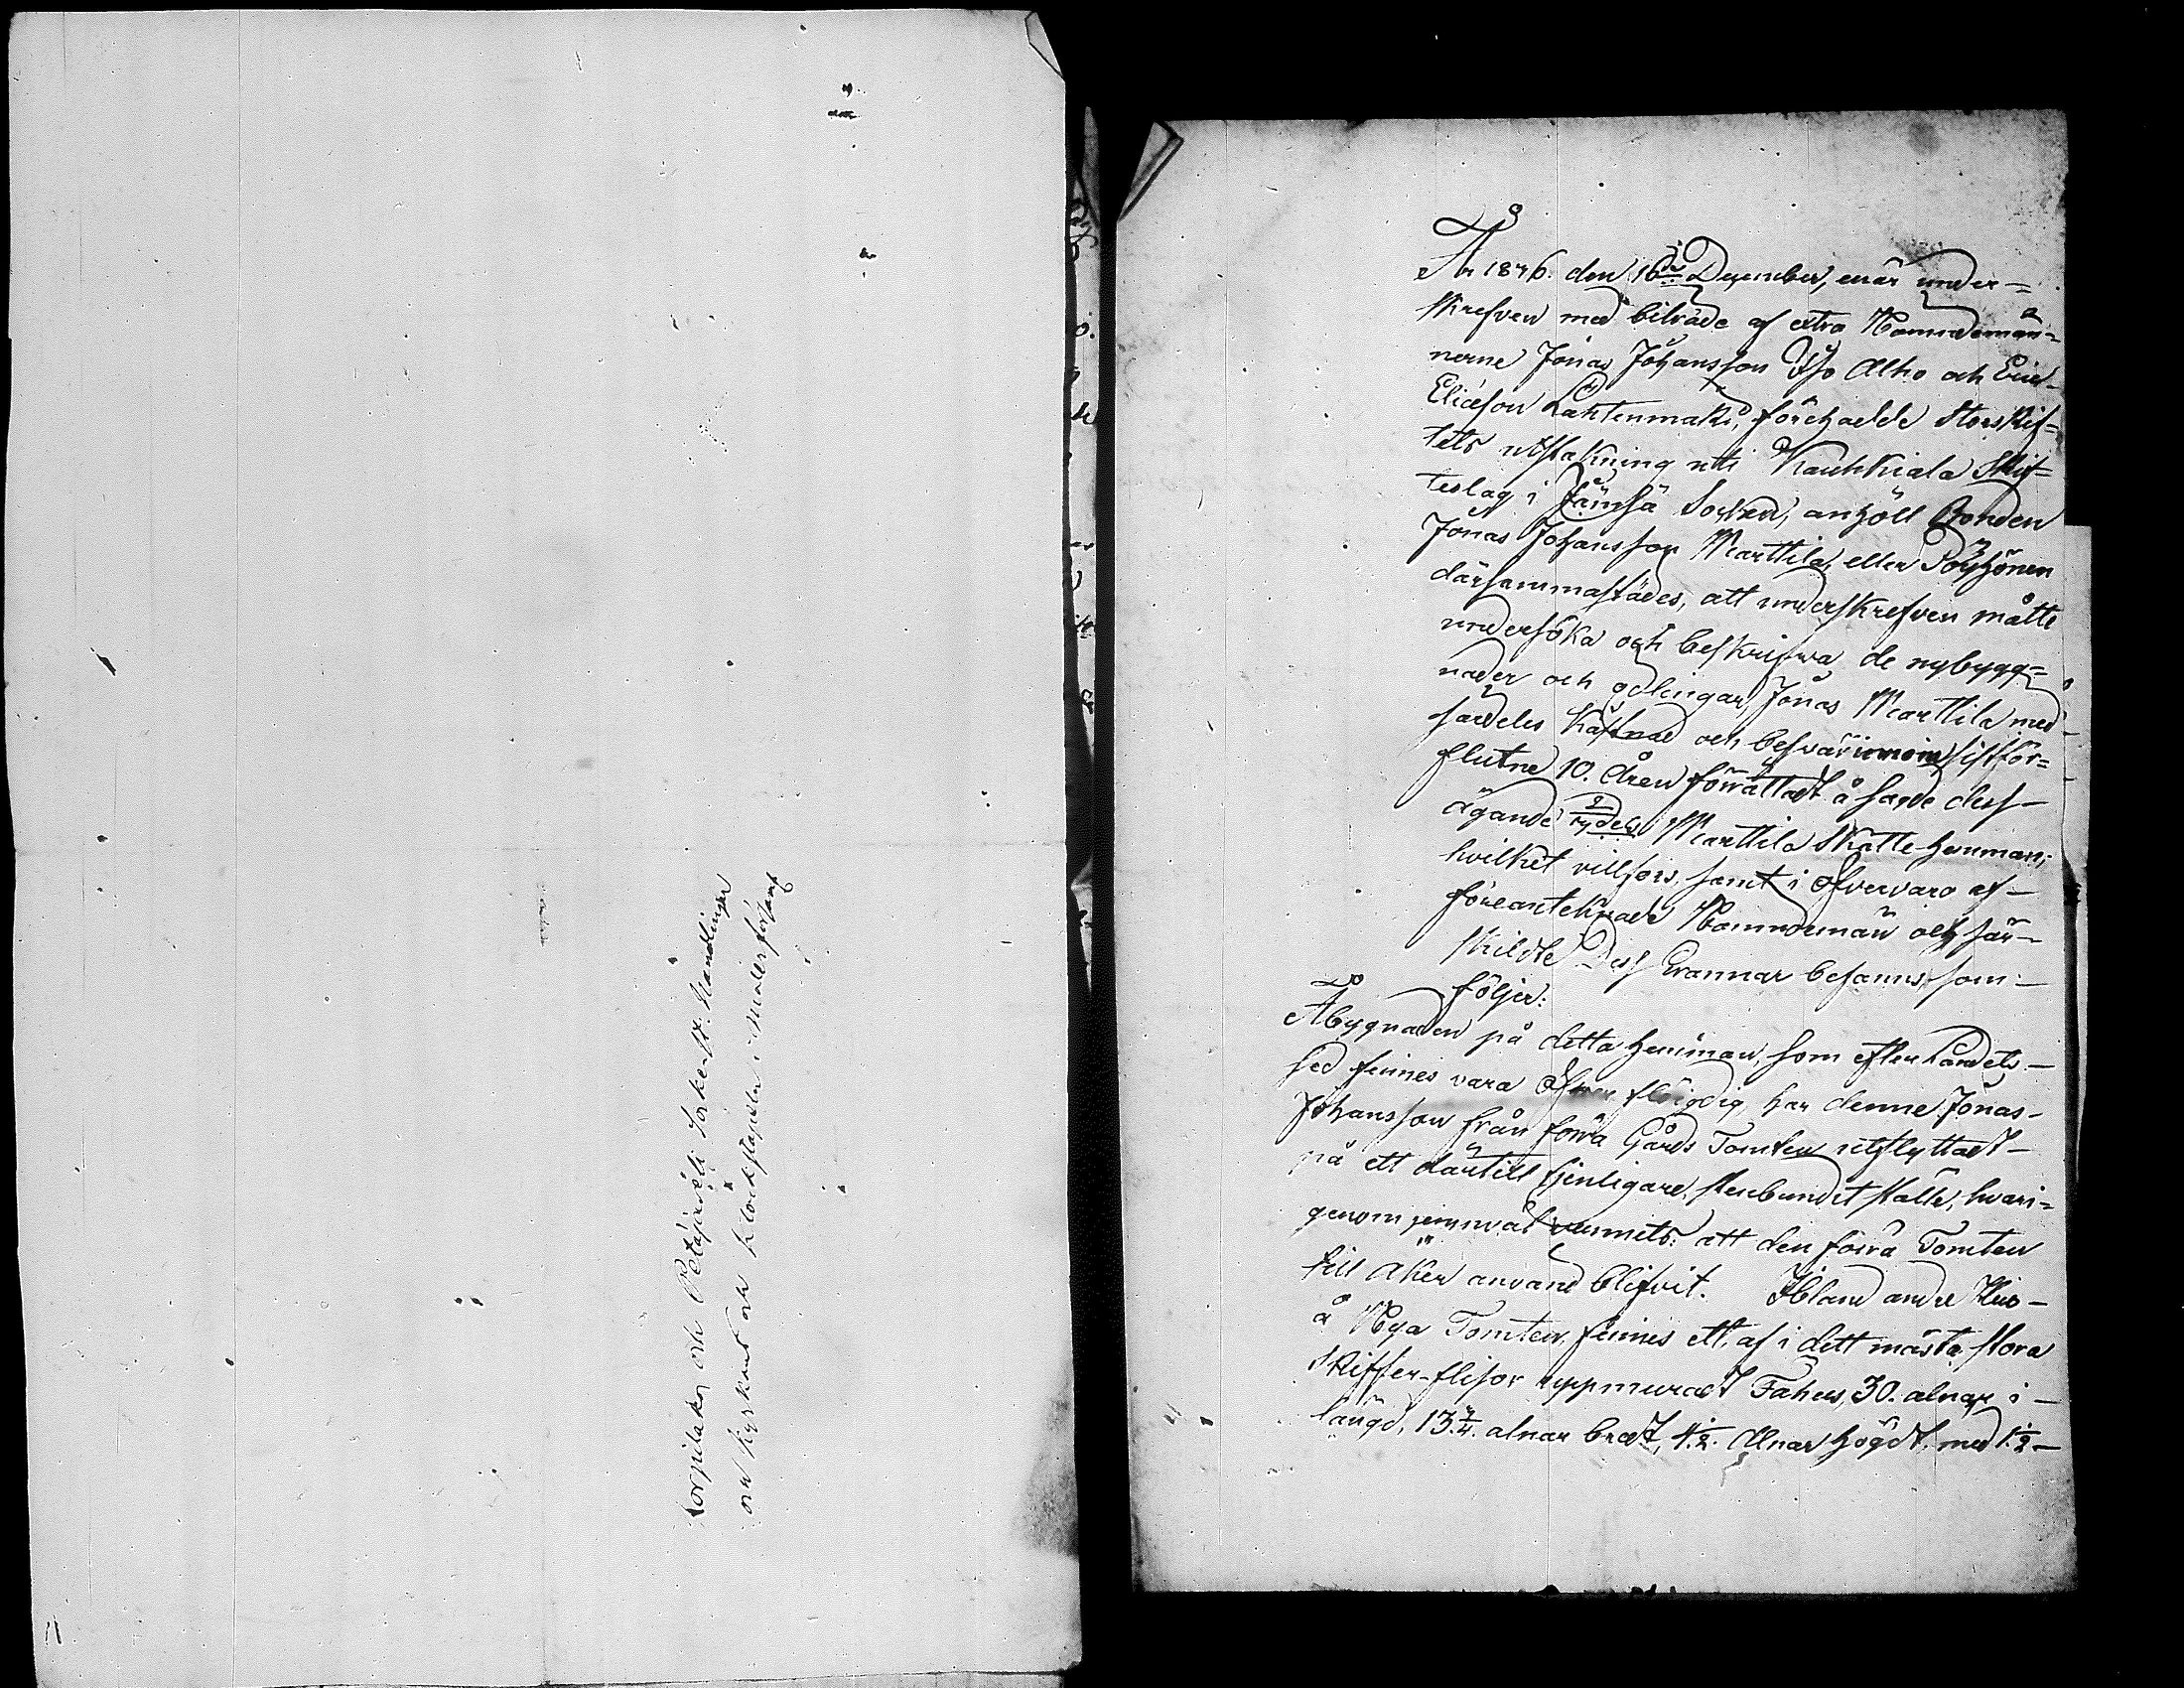 Korpilaks och Petäjäveti Sockenst. Handlingar
om kyrkans och klockstapeln
År 1846. den 16de December, enär under=
skrefven med biträde af extra Nämndemän=
nerne Jonas Johansson Yso Alho och Eric
Ericsson Lahtenmäki, förehade Storskif=
tets utstakning uti Kauhkiala Skif=
teslag i Jämsä Socken, anhöll Bonden
Jonas Johansson Marttila, eller Pöyhönen
därsammastädes, att underskrefven måtte
undersöka och beskrifva de nybygg=
nader och odlingar, Jonas Marttila med
särdeles kåstnad och besvär innom sistför=
flutne 10. åren förrättadt å sande dess
ägande Marttila Skatte-hemman;
hvilket villfors, samt i öfvervaro af
föreantecknade Nämndemän och sär-
skildte Dess Grannar befanns, som
följer:
Åbygnaden på detta hemman, som efter Landets
sed finnes vara öfver flödig, har denne Jonas
Johansson från förra Gårds Tomten utflyttadt
på ett dartill tjenligare, stenbundit ställe, hvari=
genom jemnväl vunnits: att den förra Tomten
till åker använd blifvit. Ibland andre Hus
å Nya Tomten, finnes ett, af i dett mästa stora
Skiffer-flisor uppmuradt Fähus, 30. alnar i
längd, 13 3/4. alnar bredt, 4 1/2. Alnar högdt, med 1 1/2